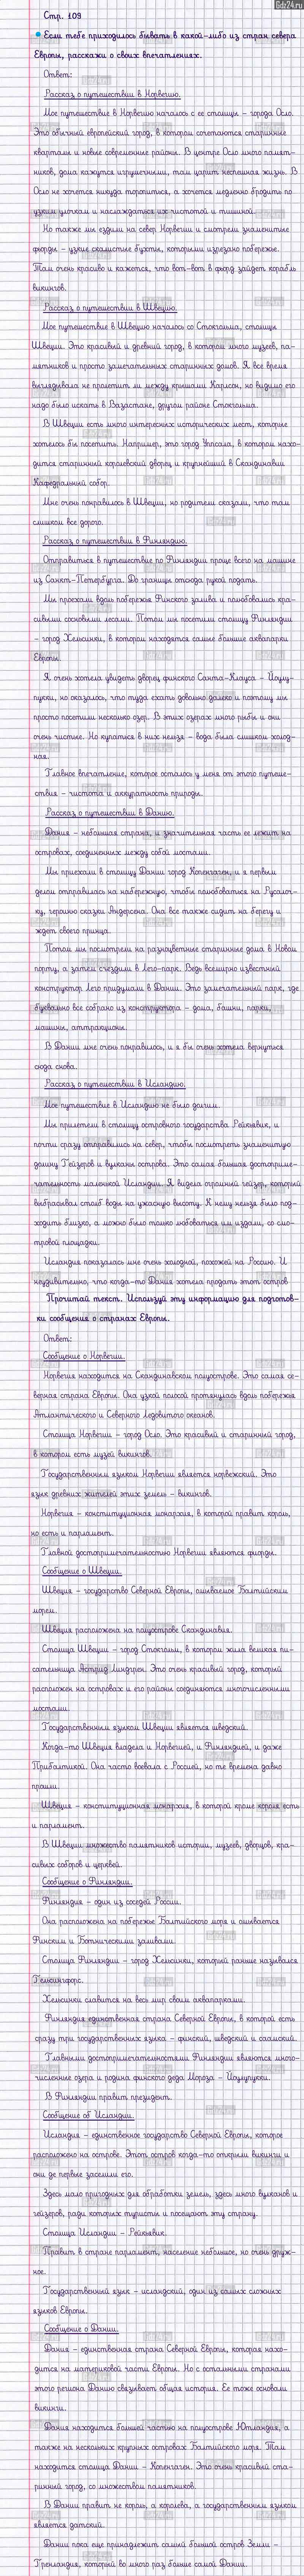 Gdz24.ru
Стр. 109
Если тебе приходилось бывать в какой-либо из стран севера
Европы, расскажи о своих впечатлениях.
Ответ:
Рассказ о путешествии в Норвегию.
Мое путешествие в Норвегию началось с ее столицы – города Осло.
Это обычный европейский город, в котором сочетаются старинные
кварталы и новые современные районы. В центре Осло много памят-
ников, дома кажутся игрушечными, там царит неспешная жизнь. В
Осло не хочется никуда торопиться, а хочется медленно бродить по
узким улочкам и наслаждаться их чистотой и тишиной.
Но также мы ездили на север Норвегии и смотрели знаменитые
фьорды – узкие скалистые бухты, которыми изрезано побережье.
Там очень красиво и кажется, что вот-вот в фьорд зайдет корабль
викингов.
Рассказ о путешествии в Швецию.
Мое путешествие в Швецию началось со Стокгольма, столицы
Швеции. Это красивый и древний город, в котором много музеев, па-
мятников и просто замечательных старинных домов. Я все время
выглядывала не пролетит ли между крышами Карлсон, но видимо его
надо было искать в Вазастане, другом районе Стокгольма.
В Швеции есть много интересных исторических мест, которые
хотелось бы посетить. Например, это город Уппсала, в котором нахо-
дится старинный королевский дворец и крупнейший в Скандинавии
Кафедральный собор.
Мне очень понравилось в Швеции, но родители сказали, что там
слишком все дорого.
Рассказ о путешествии в Финляндию.
Отправиться в путешествие по Финляндии проще всего на машине
из Санкт-Петербурга. До границы отсюда рукой подать.
Мы проехали вдоль побережья Финского залива и полюбовались кра-
сивыми сосновыми лесами. Потом мы посетили столицу Финляндии
– город Хельсинки, в котором находятся самые большие аквапарки
Европы.
Я очень хотела увидеть дворец финского Санта-Клауса – Йоулу-
пукки, но оказалось, что туда ехать довольно далеко и поэтому мы
просто посетили несколько озер. В этих озерах много рыбы и они
очень чистые. Но купаться в них нельзя – вода была слишком холод-
ная.
Главное впечатление, которое осталось у меня от этого путеше-
ствия – чистота и аккуратность природы.
Рассказ о путешествии в Данию.
Дания – небольшая страна, и значительная часть ее лежит на
островах, соединенных между собой мостами.
Мы приехали в столицу Дании город Копенгаген, и я первым
делом отправилась на набережную, чтобы полюбоваться на Русалоч-
ку, героиню сказки Андерсена. Она все также сидит на берегу и
ждет своего принца.
Потом мы посмотрели на разноцветные старинные дома в Новом
порту, а затем съездили в Лего-парк. Ведь всемирно известный
конструктор Лего придумали в Дании. Это замечательный парк, где
буквально все собрано из конструктора – дома, башни, парки,
машины, аттракционы.
В Дании мне очень понравилось, и я бы очень хотела вернуться
сюда снова.
Рассказ о путешествии в Исландию.
Мое путешествие в Исландию не было долгим.
Мы прилетели в столицу островного государства Рейкьявик, и
почти сразу отправились на север, чтобы посмотреть знаменитую
долину Гейзеров и вулканы острова. Это самая большая достоприме-
чательность маленькой Исландии. Я видела огромный гейзер, который
выбрасывал столб воды на ужасную высоту. К нему нельзя было под-
ходить близко, а можно было только любоваться им издали, со смо-
тровой площадки.
Исландия показалась мне очень холодной, похожей на Россию. И
неудивительно, что когда-то Дания хотела продать этот остров
Прочитай текст. Используй эту информацию для подготов-
ки сообщения о странах Европы.
Ответ:
Сообщение о Норвегии.
Норвегия находится на Скандинавском полуострове. Это самая се-
верная страна Европы. Она узкой полосой протянулась вдоль побережья
Атлантического и Северного Ледовитого океанов.
Столица Норвегии – город Осло. Это красивый и старинный город,
в котором есть музей викингов.
Государственным языком Норвегии является норвежский. Это
язык древних жителей этих земель – викингов.
Норвегия – конституционная монархия, в которой правит король,
но есть и парламент.
Главной достопримечательностью Норвегии являются фьорды.
Сообщение о Швеции.
Швеция – государство Северной Европы, омываемое Балтийским
морем.
Швеция расположена на полуострове Скандинавия.
Столица Швеции – город Стокгольм, в котором жила великая пи-
сательница Астрид Линдгрен. Это очень красивый город, который
расположен на островах и его районы соединяются многочисленными
мостами.
Государственным языком Швеции является шведский.
Когда-то Швеция владела и Норвегией, и Финляндией, и даже
Прибалтикой. Она часто воевала с Россией, но те времена давно
прошли.
Швеция – конституционная монархия, в которой кроме короля есть
и парламент.
В Швеции множество памятников истории, музеев, дворцов, кра-
сивых соборов и церквей.
Сообщение о Финляндии.
Финляндия – один из соседей России.
Она расположена на побережье Балтийского моря и омывается
Финским и Ботническими заливами.
Столица Финляндии – город Хельсинки, который раньше назывался
Гельсингфорс.
Хельсинки славится на весь мир своими аквапарками.
Финляндия единственная страна Северной Европы, в которой есть
сразу три государственных языка – финский, шведский и саамский.
Главными достопримечательностями Финляндии являются много-
численные озера и родина финского деда Мороза – Йоулупукки.
В Финляндии правит президент.
Сообщение об Исландии.
Исландия – единственное государство Северной Европы, которое
расположено на острове. Этот остров когда-то открыли викинги и
они де первые заселили его.
Здесь мало пригодных для обработки земель, здесь много вулканов и
гейзеров, ради которых туристы и посещают эту страну.
Столица Исландии – Рейкьявик.
Правит в стране парламент, население небольшое, но очень друж-
ное.
Государственный язык – исландский, один из самых сложных
языков Европы.
Сообщение о Дании.
Дания – единственная страна Северной Европы, которая нахо-
дится на материковой части Европы. Но с остальными странами
этого региона Данию связывает общая история. Ее тоже основали
викинги.
Дания находится большей частью на полуострове Ютландия, а
также на нескольких крупных островах Балтийского моря. Там
находится столица Дании – Копенгаген. Это очень красивый ста-
ринный город, со множеством памятников.
В Дании правит не король, а королева, а государственным языком
является датский.
Дании пока еще принадлежит самый большой остров Земли –
Гренландия, который во много раз больше самой Дании.